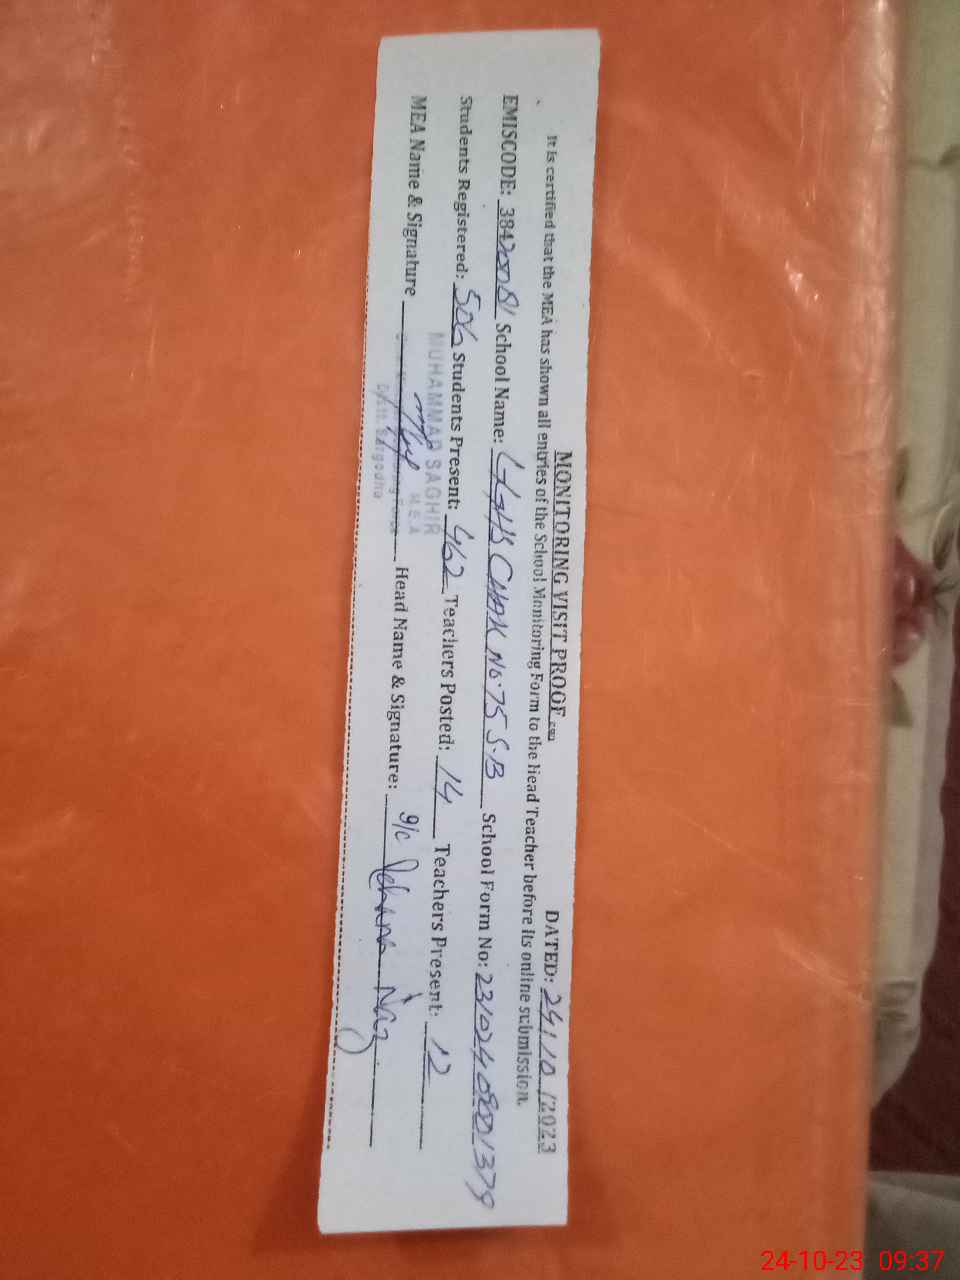 MONITORING VISIT PROOF DATED: 24/10/2023
It is certified that the MEA has shown all entries of the School Monitoring Form to the Head Teacher before its online submission.
EMISCODE: School Name: GGHS CHAK No.75 S.B School Form No:
Students Registered: 506 Students Present: 462 Teachers Posted: 14 Teachers Present: 12
MUHAMMAD SAGHIR
M.E.A
MEA Name & Signature Head Name & Signature: Naz
Sargodha
24-10-23 09:37